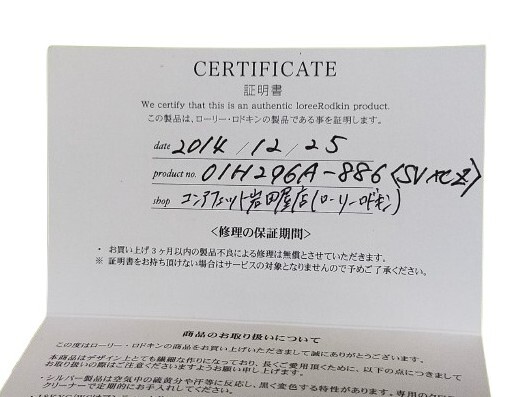 CERTIFICATE
証明書
We certify that this is an authentic loreeRodkin product.
この製品は、ローリー・ロドキンの製品である事を証明します。
date 2014/12/25
product no. 01H296A-886 (SV×CZ)
shop コンアフェット岩田屋店(ローリーロドキン)
<修理の保証期間>
・ お買い上げ3ヶ月以内の製品不良による修理は無償とさせていただきます。
※ 証明書をお持ち頂けない場合はサービスの対象となりませんので予めご了承ください。
商品のお取り扱いについて
この度はローリー・ロドキンの商品をお買い上げいただきまして誠にありがとうございます。
本商品はデザイン上とても繊細な作りになっており、長くご愛用頂くために、以下の点につきまして
お取り扱いの際はご注意くださいますようお願い申し上げます。
・シルバー製品は空気中の硫黄分や汗等に反応し、黒く変色する特性があります。専用のクロ
クリーナーで定期的にお手入れしてください。